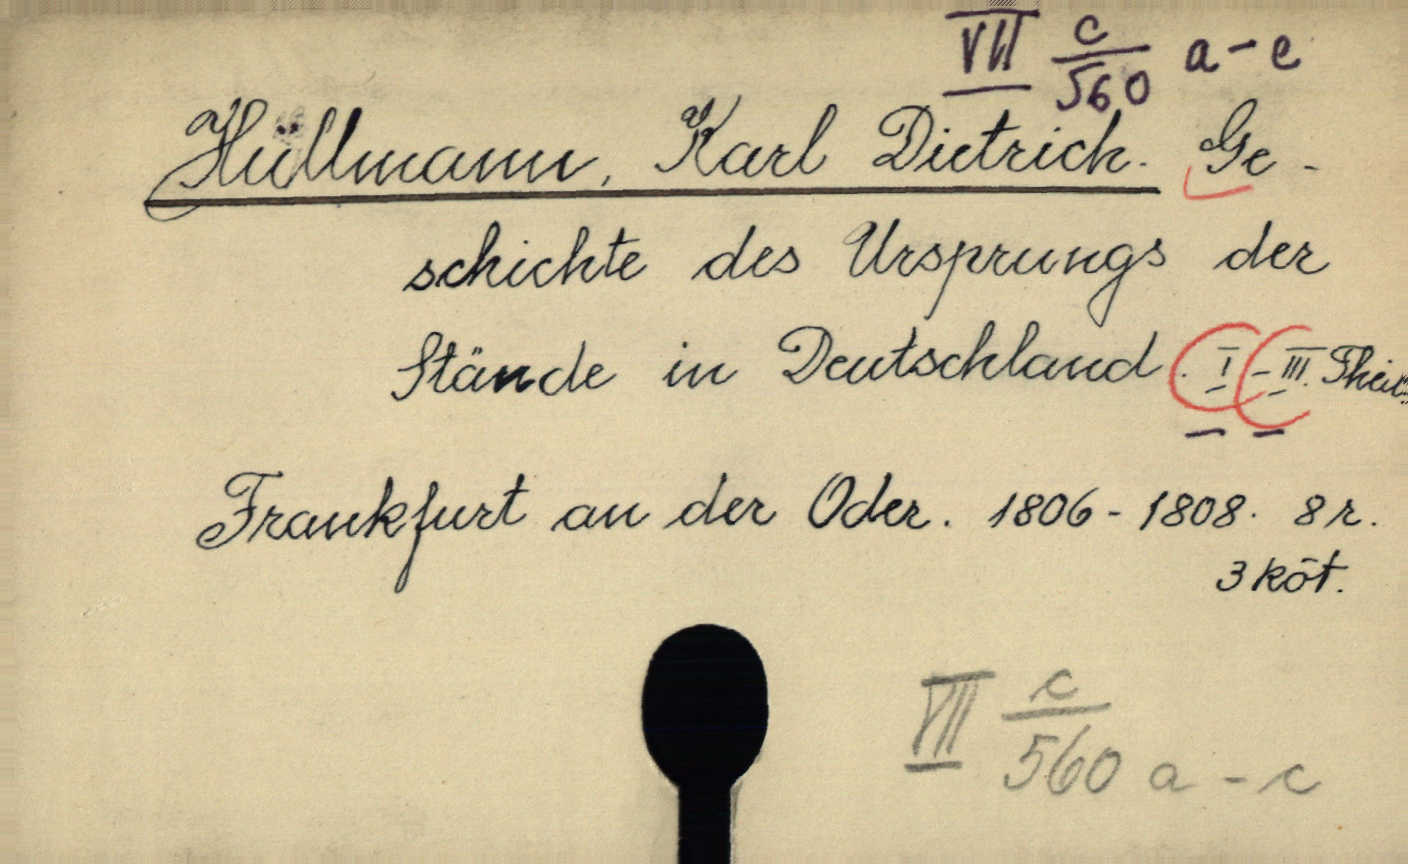 VII c/560 a-e
Hüllmann, Karl Dietrich. Ge-
schichte des Ursprungs der
Stände in Deutschland. I-III.
Frankfurt an der Oder. 1806-1808. 8r.
3 köt.
VII c/560 a-c